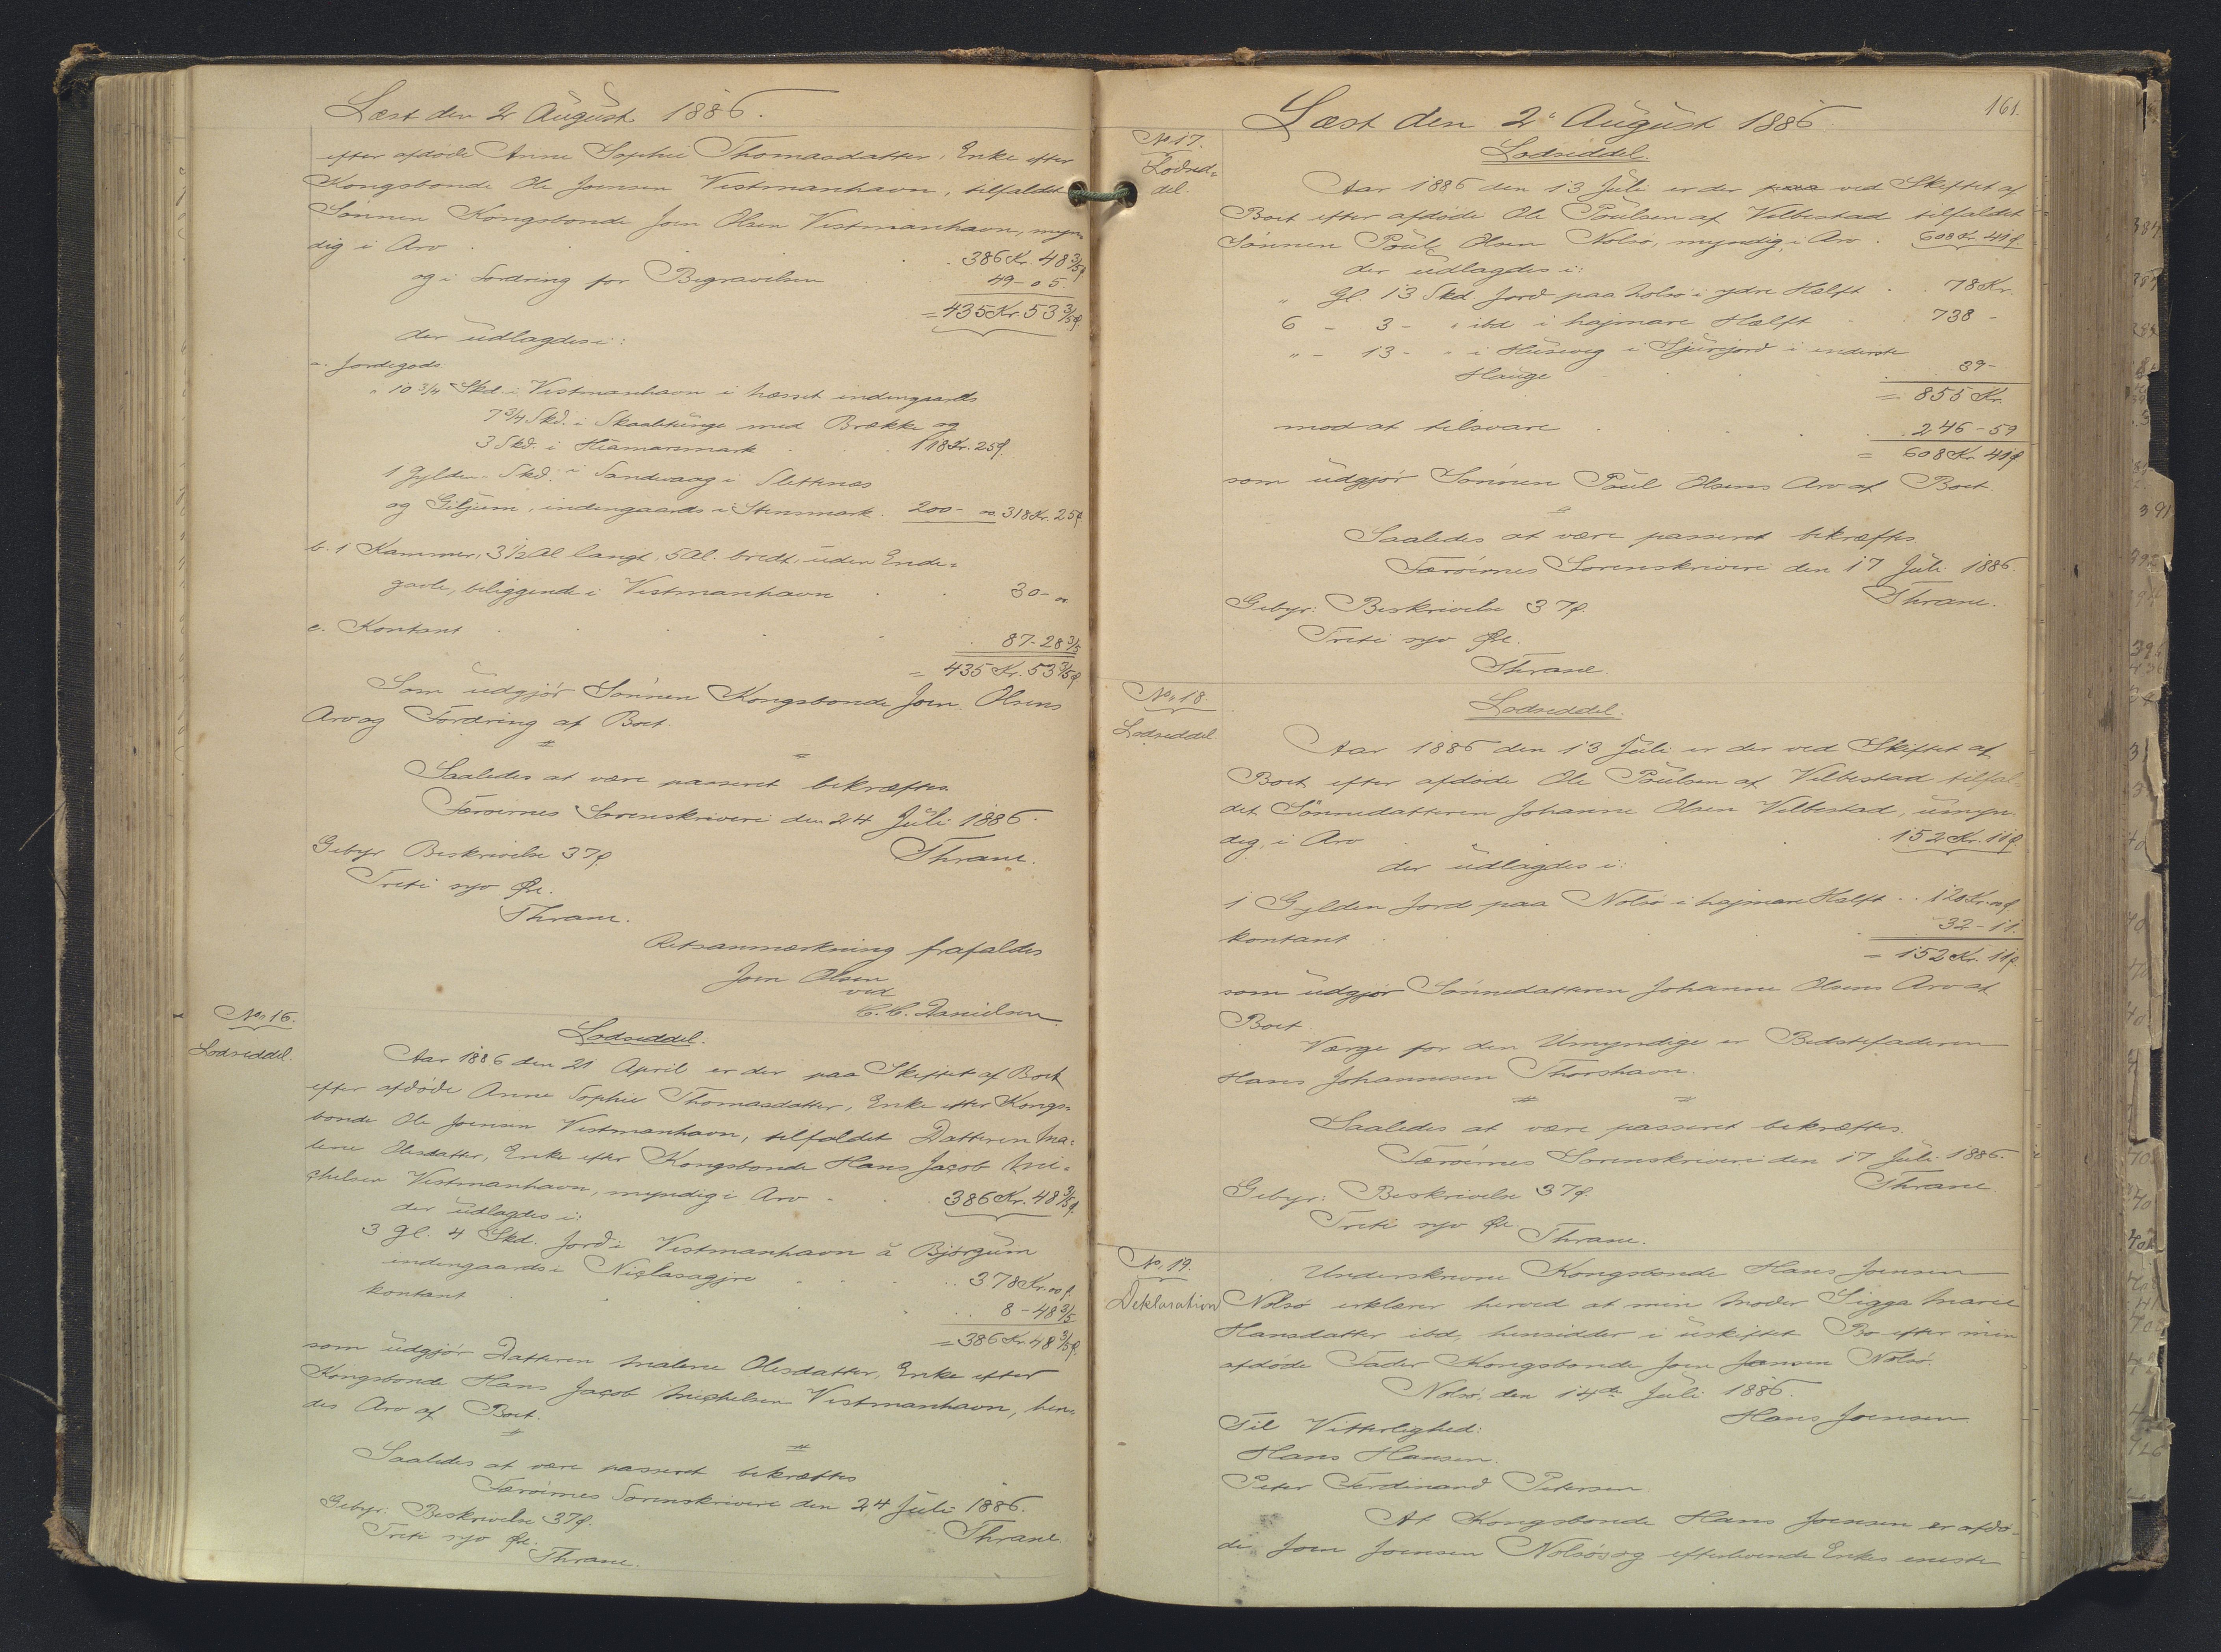 Læst den 2 August 1886.
efter afdøde Anne Sophie Thomasdatter, Enke efter
Kongsbonde Ole Joensen Vestmanhavn, tilfaldet
Sønnen Kongsbonde Joen Olsen Vestmanhavn, myn=
dig i Arv . . 386 Kr. 48 3/5 ø
og i Fordring for Begravelsen 49 - 05.
= 435 Kr. 53 3/5 ø
der udlagdes i:
a. Jordegods
" 10 3/4 Skd. i Vestmanhavn i husset indengaards
7 3/4 Skd. i Skaaletunge med Brække og
3 Skd. i Heamarsmark . . 118 Kr. 25 ø.
1 Gylden " Skd. i Sandvaag i Slettnæs
og Giljum, indengaards i Stensmark. 200 - 00 318 Kr. 25 ø
b. 1 Kammer, 3 1/2 Al langt, 5 Al. bredt, uden Ende=
gavle, beliggende i Vestmanhavn . . 30 - 00
c. Kontant . . . 87 - 28 3/5
= 435 Kr. 53 3/5 ø
Som udgjør Sønnen Kongsbonde Joen Olsens
Arv og Fordring af Boet.
Saaledes at være passeret bekræftes
Færøernes Sorenskriveri den 24 Juli 1886.
Thrane.
Gebyr Beskrivelse 37 ø.
Treti syv Øre.
Thrane.
Retsanmærkning frafaldes
Joen Olsen
ved
C. C. Danielsen
No. 16.
Lodseddel.
Lodseddel.
Aar 1886 den 21 April er der paa Skiftet af Boet
efter afdøde Anne Sophie Thomasdatter, Enke efter Kongs=
bonde Ole Joensen Vestmanhavn, tilfaldet Datteren Ma=
lene Olesdatter, Enke efter Kongsbonde Hans Jacob Mi=
chelsen Vestmanhavn, myndig i Arv . . 386 Kr. 48 3/5 ø.
der udlagdes i:
3 Gl. 4 Skd. Jord i Vestmanhavn á Bjørgum
indengaards i Niclasagjre . . . 378 Kr. 00 ø.
kontant . . . 8 - 48 3/5
= 386 Kr. 48 3/5 ø.
som udgjør Datteren Malene Olesdatter, Enke efter
Kongsbonde Hans Jacob Michelsen Vestmanhavn, hen=
des Arv af Boet.
Saaledes at være passeret bekræftes
Færøernes Sorenskriveri den 24 Juli 1886.
Thrane
Gebyr. Beskrivelse 37 ø.
Treti syv Øre.
Thrane.
161.
Læst den 2 August 1886
No. 17.
Lodsed=
del.
Lodseddel.
Aar 1886 den 13 Juli er der paa ved Skiftet af
Boet efter afdøde Ole Poulsen af Velbestad tilfaldet
Sønnen Poul Olsen Nolsø, myndig, i Arv . 608 Kr. 41 ø.
der udlagdes i:
" Gl. 13 Skd Jord paa Nolsø i ydre Halft . . 78 Kr.
6 - 3 - " ibd i hajmare Halft 738 -
" - 13 - " i Husevig i Sjurejord i enderste
Hauge . . . 39 -
= 855 Kr.
mod at tilsvare . . . 246 - 59
= 608 Kr. 41 ø
som udgjør Sønnen Poul Olsens Arv af Boet.
Saaledes at være passeret bekræftes
Færøernes Sorenskriveri den 17 Juli 1886.
Thrane.
Gebyr: Beskrivelse 37 ø.
Treti syv Øre.
Thrane.
No. 18.
Lodseddel
Lodseddel.
Aar 1886 den 13 Juli er der ved Skiftet af
Boet efter afdøde Ole Poulsen af Velbestad tilfal=
det Sønnedatteren Johanne Olsen Velbestad, umyn=
dig, i Arv . . . 152 Kr. 11 ø
der udlagdes i:
1 Gylden Jord paa Nolsø i hajmare Halft . . 120 Kr. 00 ø
kontant . . . 32 - 11.
= 152 Kr. 11 ø.
som udgjør Sønnedatteren Johanne Olsens Arv af
Boet.
Værge for den Umyndige er Bedstefaderen
Hans Johannesen Thorshavn.
Saaledes at være passeret bekræftes.
Færøernes Sorenskriveri den 17 Juli 1886.
Thrane
Gebyr: Beskrivelse 37 ø.
Treti syv Øre.
Thrane.
No. 19.
Deklaration
Underskrevne Kongsbonde Hans Joensen
Nolsø erklærer herved at min Moder Sigga Marie
Hansdatter ibd, hensidder i uskiftet Bo efter min
afdøde Fader Kongsbonde Joen Joensen Nolsø.
Nolsø, den 14de Juli 1886.
Hans Joensen
Til Vitterlighed:
Hans Hansen.
Peter Ferdinand Petersen
At Kongsbonde Hans Joensen er afdø=
de Joen Joensen Nolsøs og efterlevende Enkes eneste